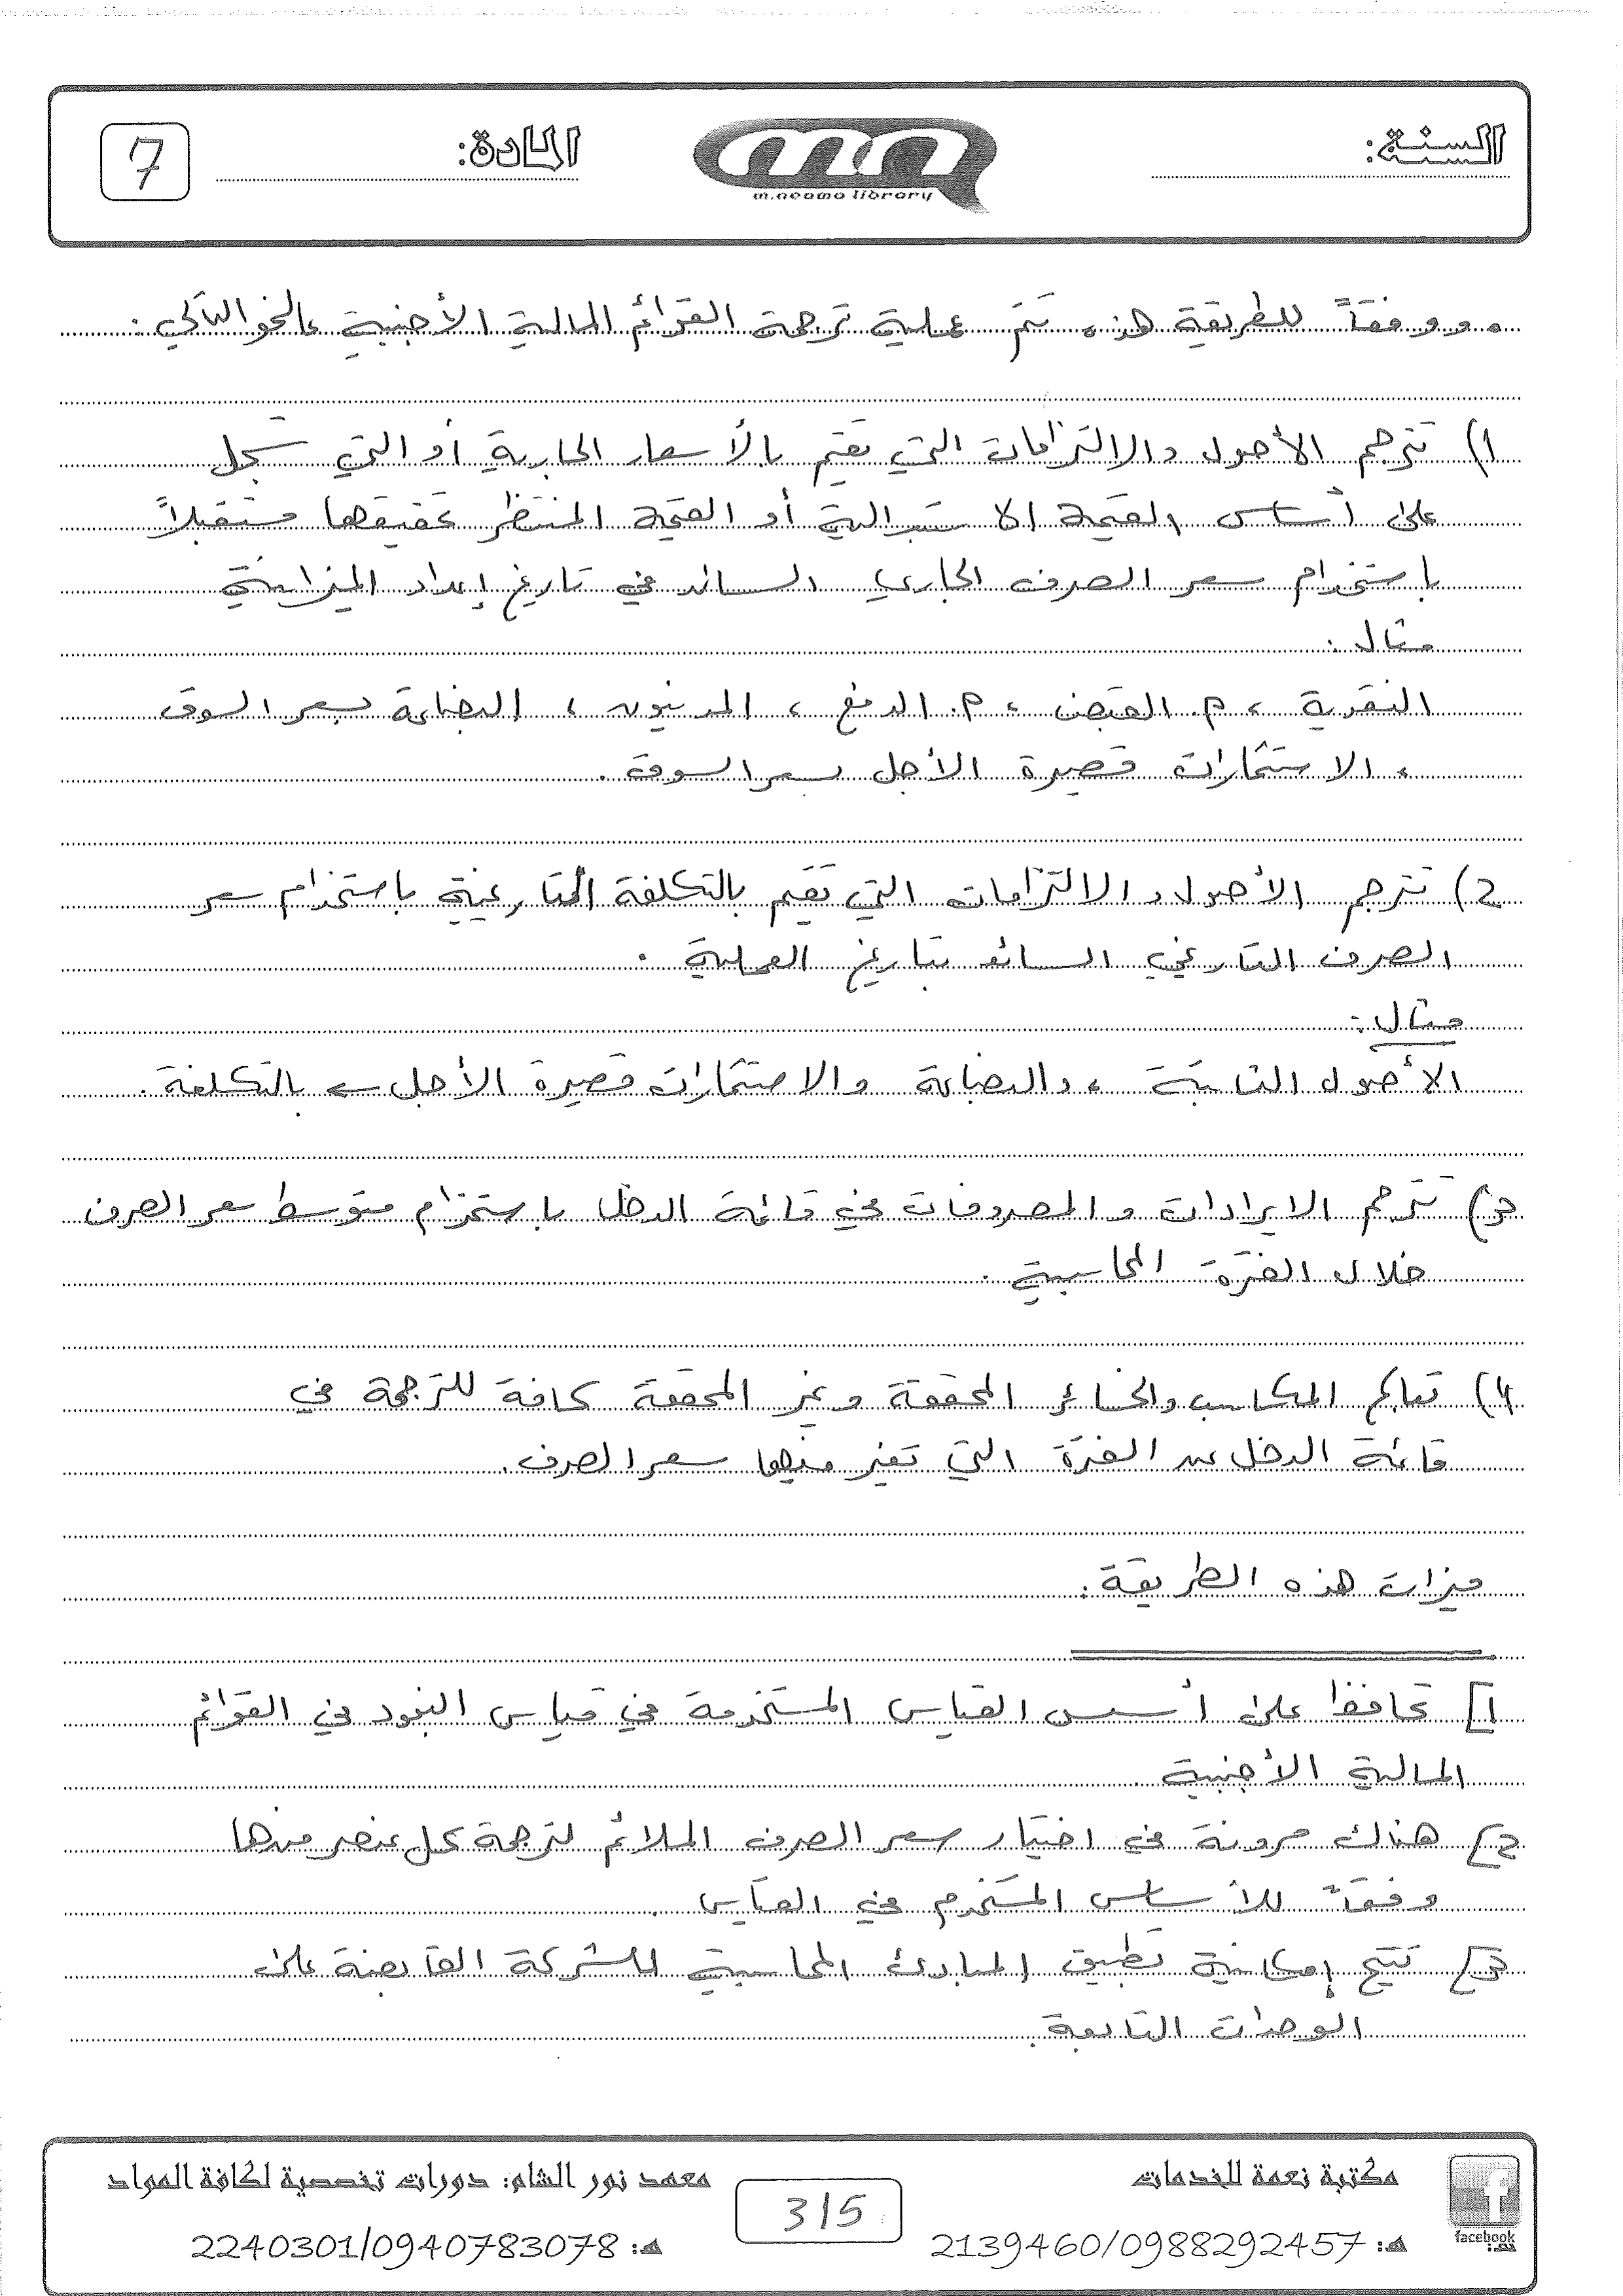 السنة:
m.neama library
المادة:
7
ووفقاً للطريقة هذه تتم عملية ترجمة القوائم المالية الأجنبية بالنحو التالي:
1) تترجم الأصول والالتزامات التي تقيم بالأسعار الجارية أو التي تسجل
على أساس القيمة الاستبدالية أو القيمة المنتظر تحقيقها مستقبلاً
باستخدام سعر الصرف الجاري السائد في تاريخ إعداد الميزانية
مثال:
النقدية ، م. القبض ، م. الدفع ، المدينون ، البضاعة بسعر السوق
، الاستثمارات قصيرة الأجل بسعر السوق.
2) تترجم الأصول والالتزامات التي تقيم بالتكلفة التاريخية باستخدام سعر
الصرف التاريخي السائد بتاريخ العملية.
مثال:
الأصول الثابتة ، والبضاعة والاستثمارات قصيرة الأجل ← بالتكلفة.
3) تترجم الايرادات والمصروفات في قائمة الدخل باستخدام متوسط سعر الصرف
خلال الفترة المحاسبية.
4) تعالج المكاسب والخسائر المحققة وغير المحققة كافة للترجمة في
قائمة الدخل عن الفترة التي تغير فيها سعر الصرف.
ميزات هذه الطريقة:
1] تحافظ على أسس القياس المستخدمة في قياس البنود في القوائم
المالية الأجنبية
2] هناك مرونة في اختيار سعر الصرف الملائم لترجمة كل عنصر منها
وفقاً للأساس المستخدم في القياس.
3] تتيح إمكانية تطبيق المبادئ المحاسبية للشركة القابضة على
الوحدات التابعة.
مكتبة نعمة للخدمات
هـ: 2139460/0988292457
facebook
315
معهد نور الشام: دورات تخصصية لكافة المواد
هـ: 2240301/0940783078